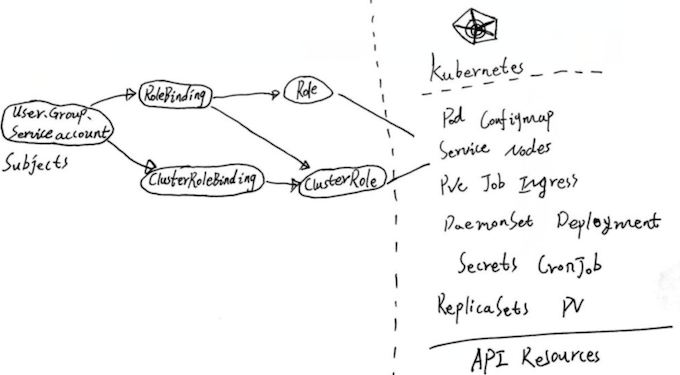 User.Group.
Service account
Subjects
RoleBinding
Role
ClusterRoleBinding
ClusterRole
Kubernetes
Pod Configmap
Service Nodes
PVC Job Ingress
DaemonSet Deployment
Secrets CronJob
ReplicaSets PV
API Resources